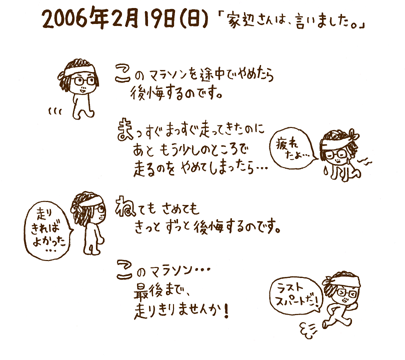 2006年2月19日(日)「家辺さんは、言いました。」
このマラソンを途中でやめたら
後悔するのです。
まっすぐまっすぐ走ってきたのに
あともう少しのところで
走るのをやめてしまったら…
疲れ
たよ…
ねてもさめても
きっとずっと後悔するのです。
走り
きれば
よかった
…
このマラソン…
最後まで、
走りきりませんか!
ラスト
スパートだ!